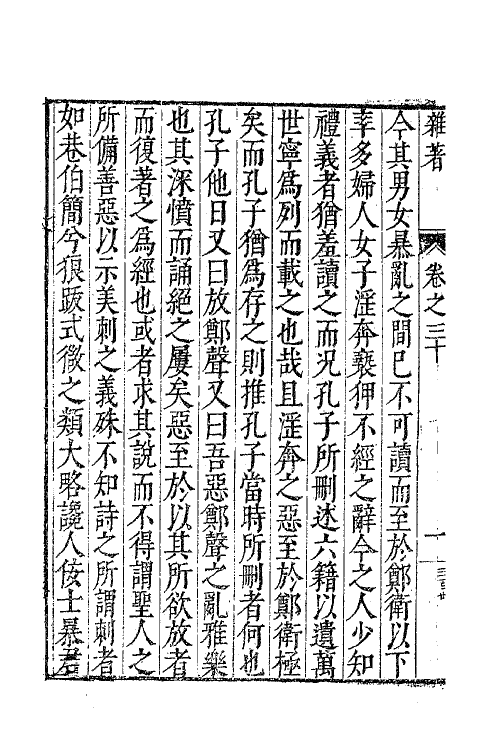 雜著 卷之三十 一
今其男女暴亂之間已不可讀而至於鄭衛以下
率多婦人女子淫奔褻狎不經之辭今之人少知
禮義者猶羞讀之而況孔子所刪述六籍以遺萬
世寧爲列而載之也哉且淫奔之惡至於鄭衛極
矣而孔子猶爲存之則推孔子當時所刪者何也
孔子他日又曰放鄭聲又曰吾惡鄭聲之亂雅樂
也其深憤而誦絕之屢矣惡至於以其所欲放者
而復著之爲經也或者求其說而不得謂聖人之
所備善惡以示美刺之義殊不知詩之所謂刺者
如巷伯簡兮狼跋式微之類大略讒人佞士暴君